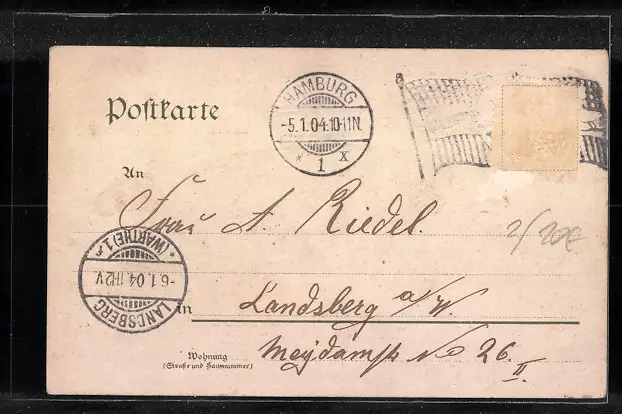 HAMBURG
-5.1.04.10-11N.
* 1 x
Postkarte
An
Frau A. Riedel.
2/20€
LANDSBERG
-6.1.04.11-12V.
*(WARTHE)1*
in Landsberg a/W.
Wohnung
(Straße und Hausnummer)
No 26.
II